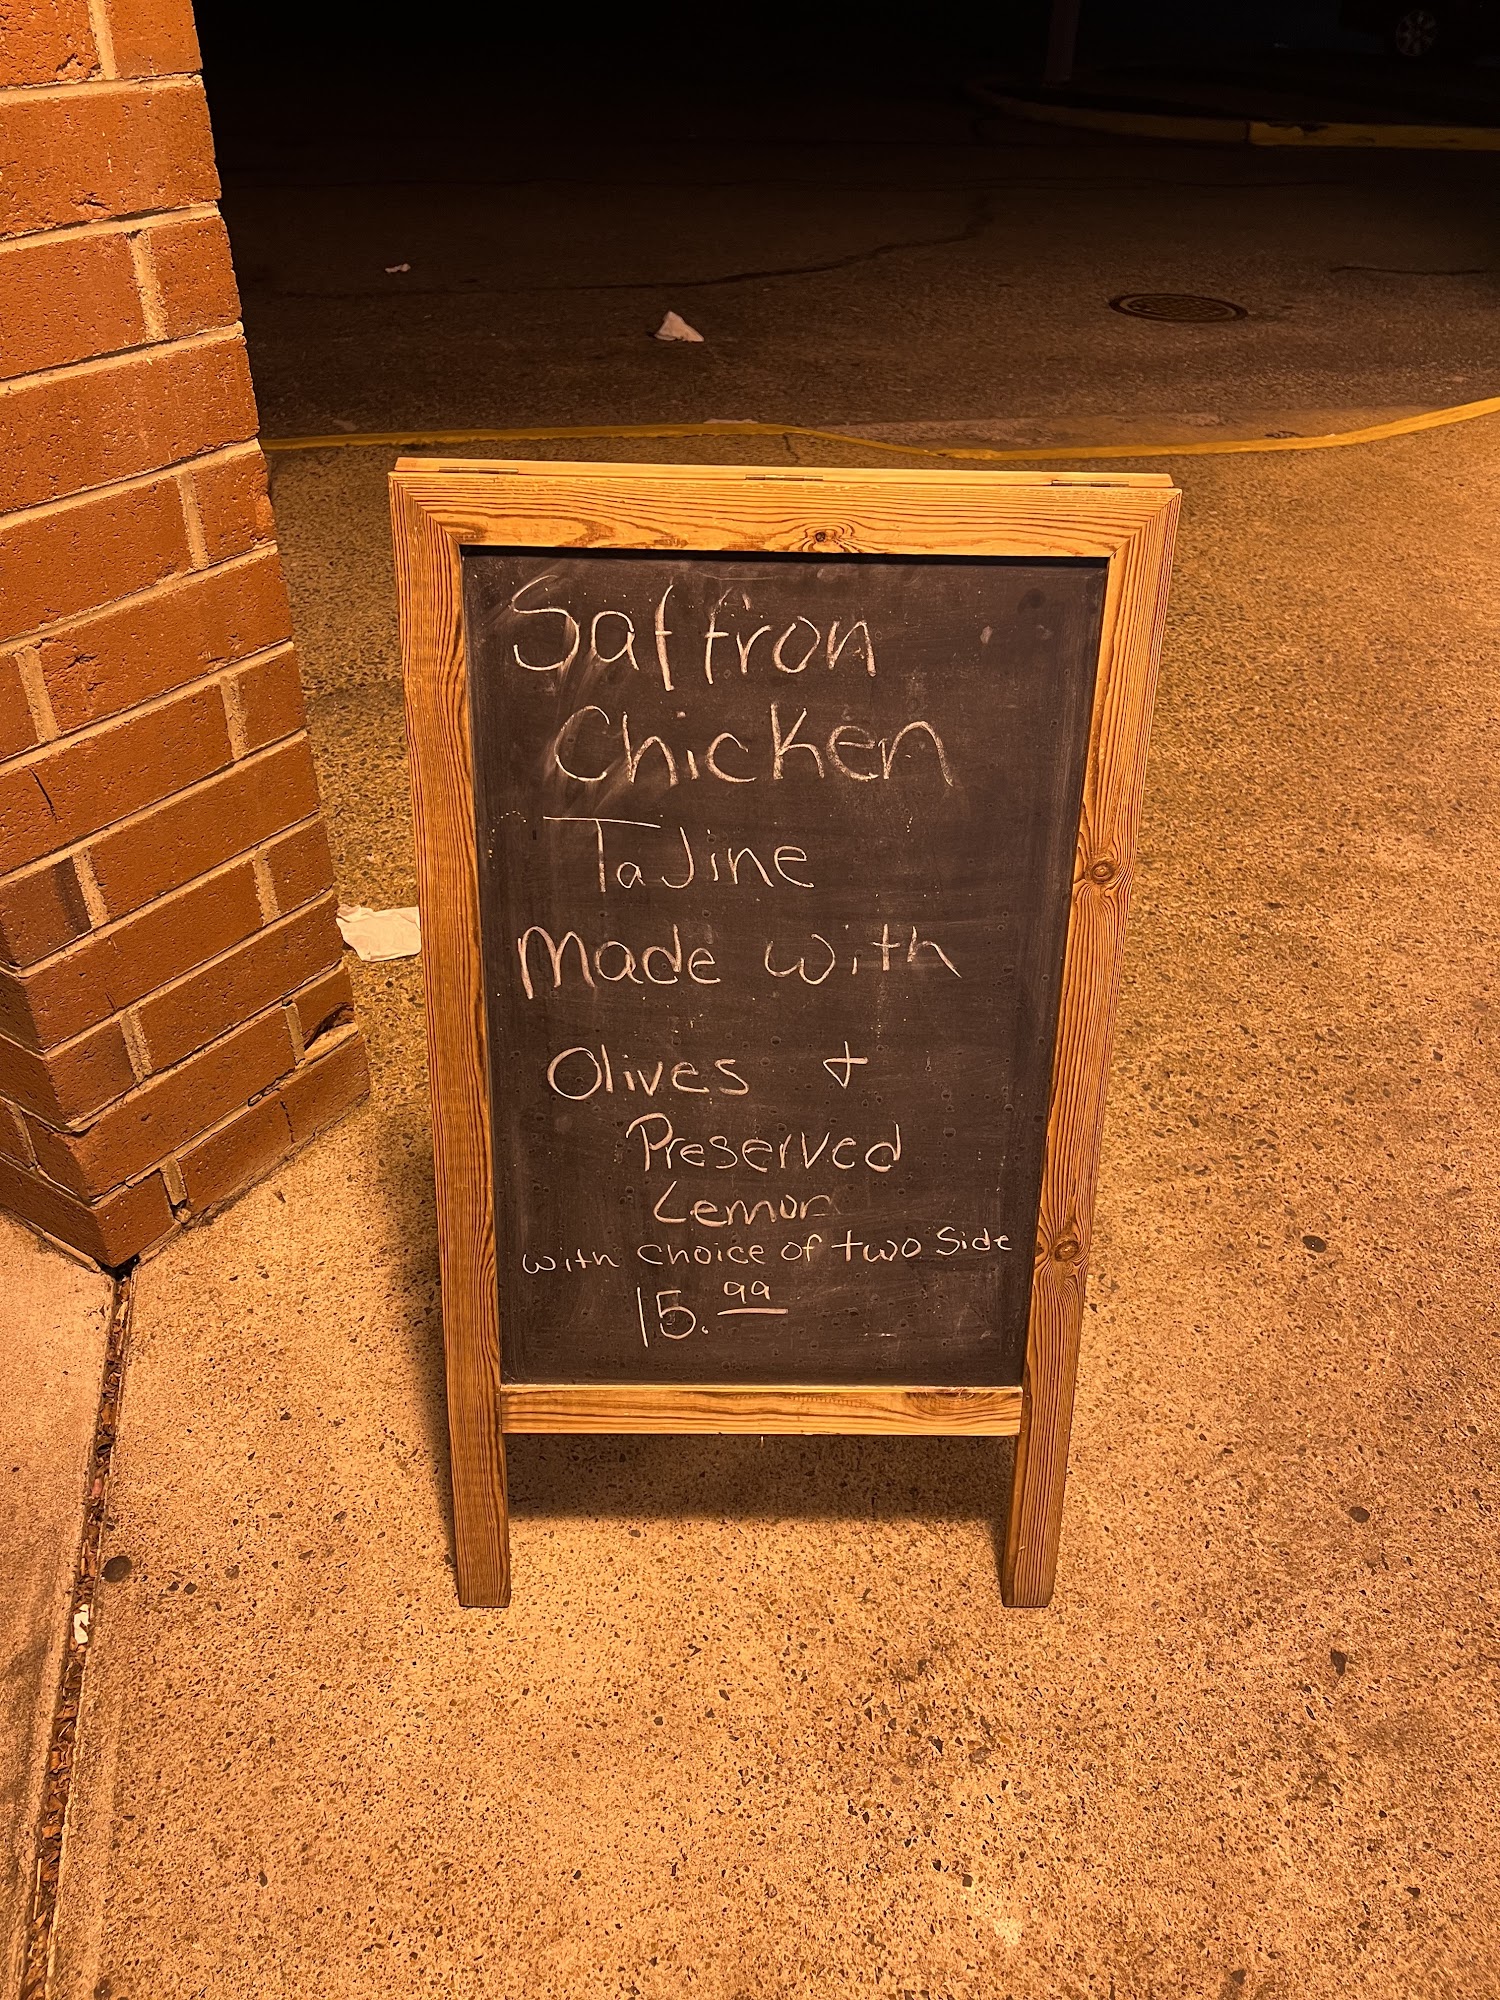 Saffron
Chicken
Tajine
Made with
Olives +
Preserved
Lemon
with choice of two Side
15.99